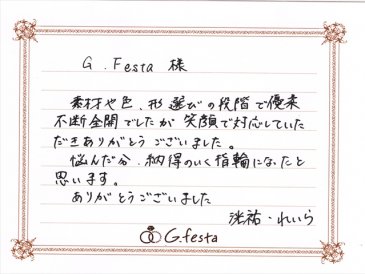 G.Festa 様
素材や色、形 選びの段階で優柔
不断全開でしたが 笑顔で対応していた
だきありがとうございました。
悩んだ分、納得のいく指輪になったと
思います。
ありがとうございました
洸祐・れいら
G.festa